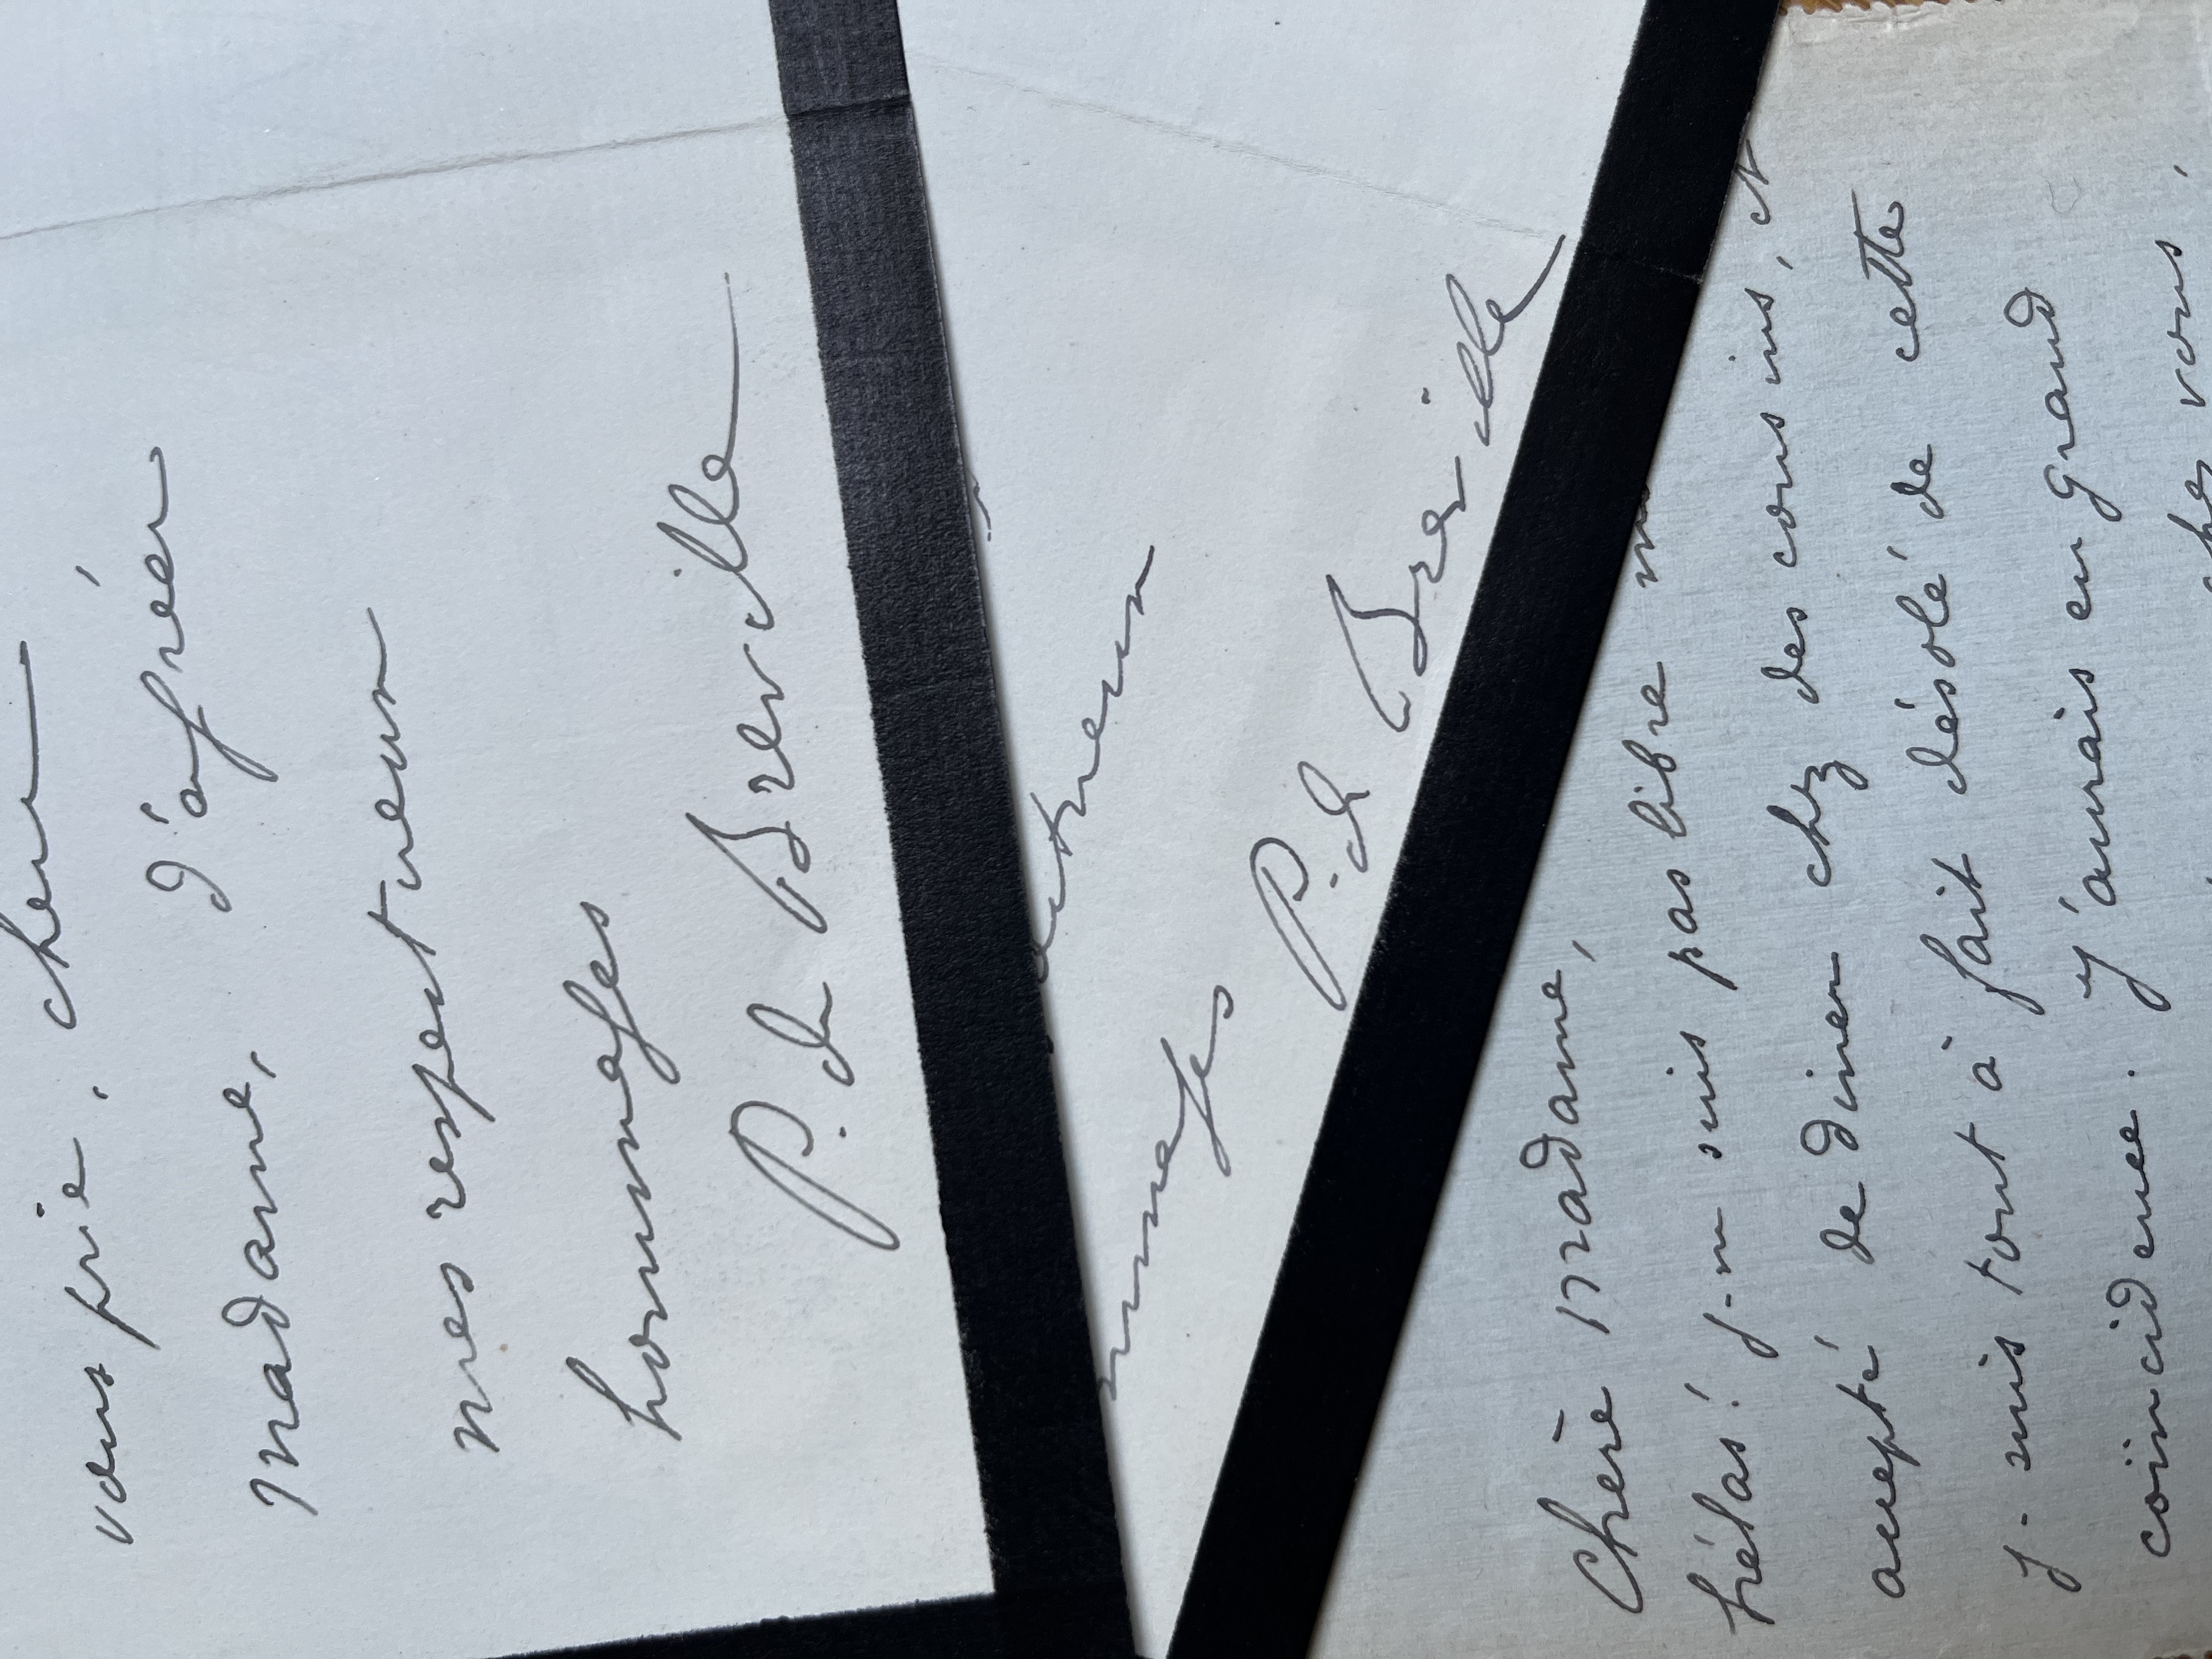 vous prie, chère
Madame, d'agréer
mes respectueux
hommages
P. de Breville
ectueux
mmages
P. de Breville
Chère Madame,
hélas! je ne suis pas libre
accepté de diner chez des cousins, et
je suis tout à fait désolé de cette
coincidence. J'aurais eu grand
chez vous,